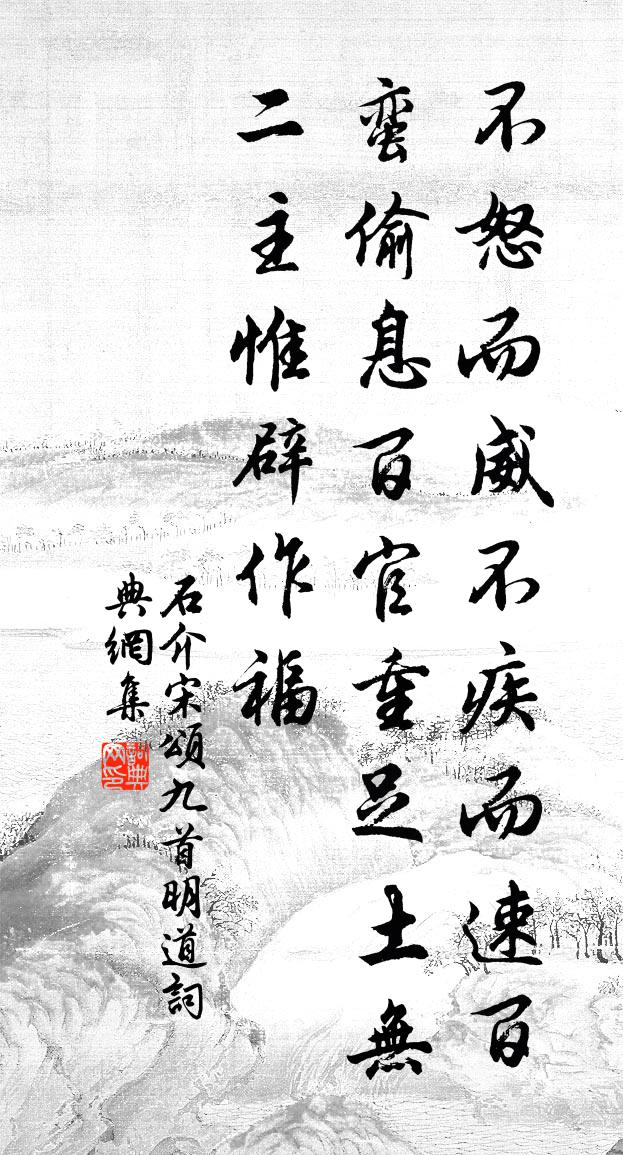 不怒而威不疾而速百
蛮偷息百官重足土無
二主惟辟作福
石介宋頌九首明道詞
典網集
詞典網印